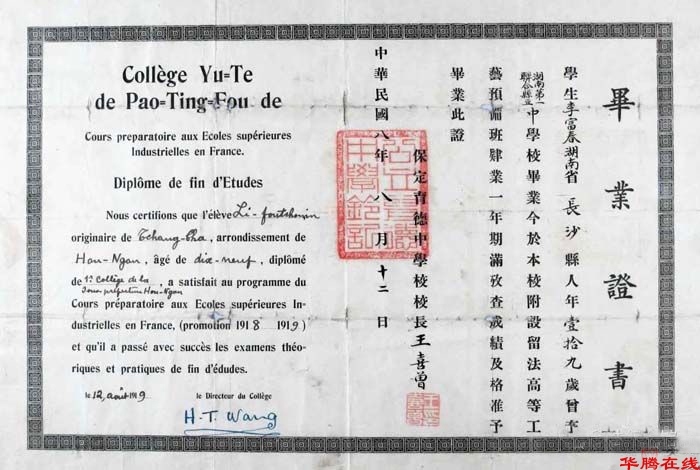 Collège Yu=Te
de Pao=Ting=Fou de
Cours préparatoire aux Ecoles supérieures
Industrielles en France.
Diplôme de fin d'Etudes
Nous certifions que l'élève Li-foutchouin
originaire de Tchang-Cha, arrondissement de
Hou-Ngan, âgé de dix-neuf, diplômé
de 1er Collège de la
Sous préfecture Hou-Ngan, a satisfait au programme du
Cours préparatoire aux Ecoles supérieures In-
dustrielles en France, (promotion 1918 1919)
et qu'il a passé avec succès les examens théo-
riques et pratiques de fin d'édudes.
le 12, août 1919
le Directeur du Collège
H.T. Wang
畢業證書
學生李富春湖南省長沙縣人年壹拾九歲曾在
湖南第一
聯合縣立
中學校畢業今於本校附設留法高等工
藝預備班肄業一年期滿攷查成績及格准予
畢業此證
保定育德中學校校長王喜曾
中華民國八年八月十二日
华腾在线